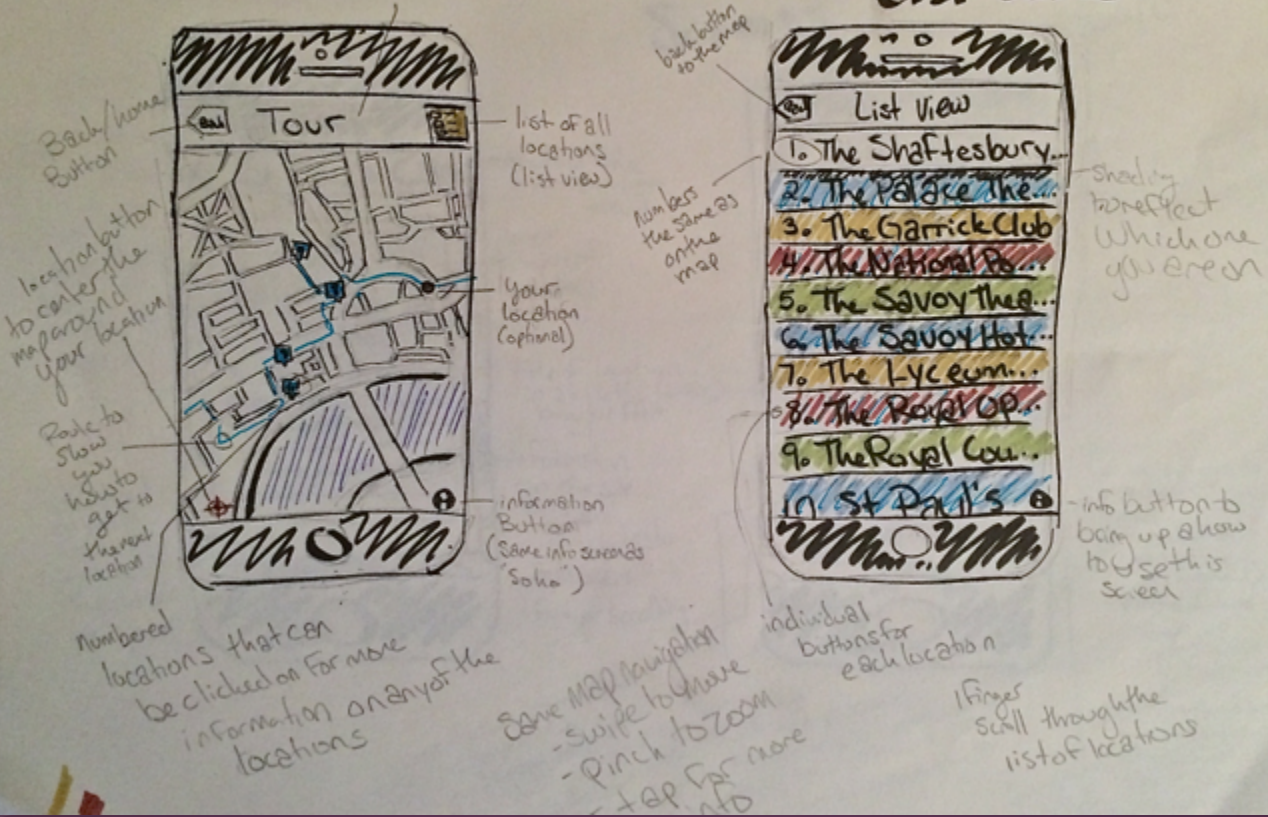 Back/home
Button
Tour
list of all
locations
(list view)
location button
to center the
map around
your location
your
location
(optional)
Route to
show
you
how to
get to
the next
location
information
Button
(same info screen as
"Soho")
numbered
locations that can
be clicked on for more
information on any of the
locations
back button
to the map
List View
1. The Shaftesbury...
2. The Palace The...
3. The Garrick Club
4. The National Po...
5. The Savoy Thea...
6. The Savoy Hot...
7. The Lyceum...
8. The Royal Op...
9. The Royal Cou...
10 St Paul's
numbers
the same as
on the
map
shading
to reflect
which one
you are on
info button to
bring up a how
to use this
screen
individual
buttons for
each location
same map navigation
- swipe to move
- pinch to zoom
- tap for more
info
1 finger
scroll through the
list of locations